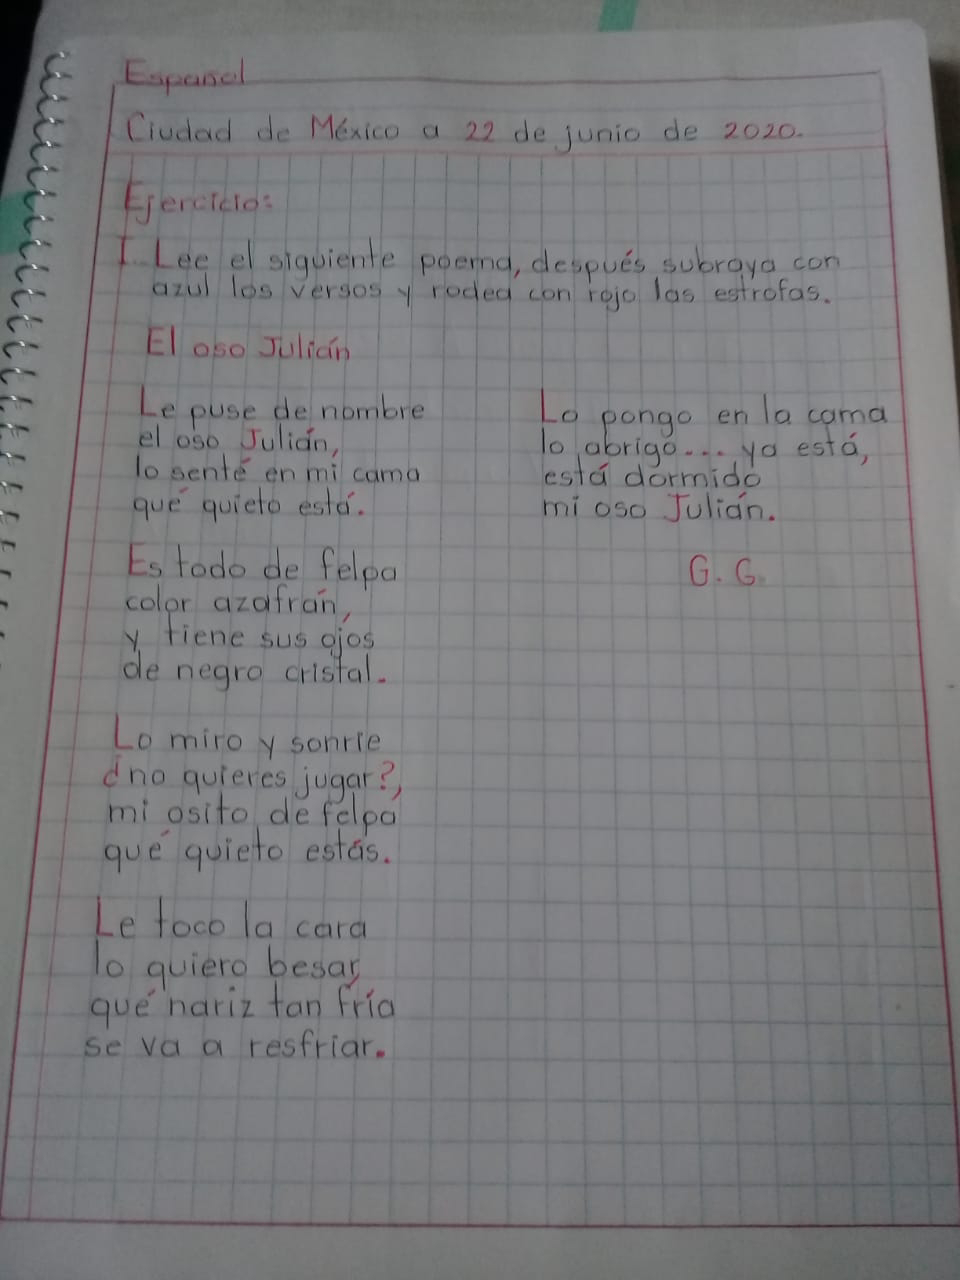 Español
Ciudad de México a 22 de junio de 2020.
Ejercicio:
I. Lee el siguiente poema, después subraya con
azul los versos y rodea con rojo las estrofas.
El oso Julián
Le puse de nombre
el oso Julián,
lo senté en mi cama
qué quieto está.
Es todo de felpa
color azafrán,
y tiene sus ojos
de negro cristal.
Lo miro y sonríe
¿no quieres jugar?,
mi osito de felpa
qué quieto estás.
Le toco la cara
lo quiero besar,
qué nariz tan fría
se va a resfriar.
Lo pongo en la cama
lo abrigo... ya está,
está dormido
mi oso Julián.
G. G.